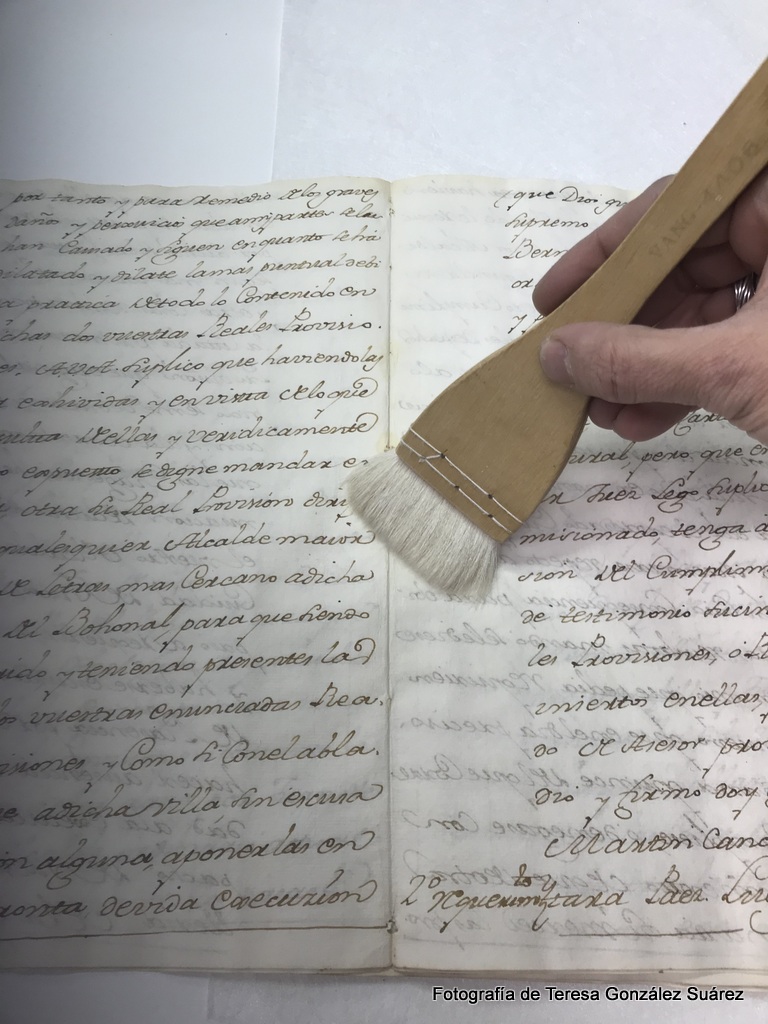 por tanto y para remedio de los graves
daños y perxuicios que a mi parte se la
han Causado y siguen en quanto se ha
dilatado y dilate la mas puntual debi
a practica de todo lo Contenido en
chas dos vuestras Reales Provisio.
es. A V.A. suplico que haviendo las
exhividas y en vista de lo que
resulta dellas y veridicamente
expuesto se digne mandar
otra su Real Provision diri
qualesquier Alcalde maior
de Letras mas Cercano a dicha
del Bohonal para que siendo
y teniendo presentes las
vuestras enunciadas Rea.
visiones y Como si Con el abla.
adicha villa sin escusa
alguna, a ponerlas en
pronta devida execucion
que Dios gu
supremo
Bern
or
y
ural, pero que en
Juez Lego suplic
misionado tenga a
sion del Cumplim
de testimonio sucin
les Provisiones, o
mientos en ellas,
do el Asesor pro
dio y firmo doy
Martin Canc
2º Requerim.to y
Paez. Lu
FANG-1408
Fotografía de Teresa González Suárez